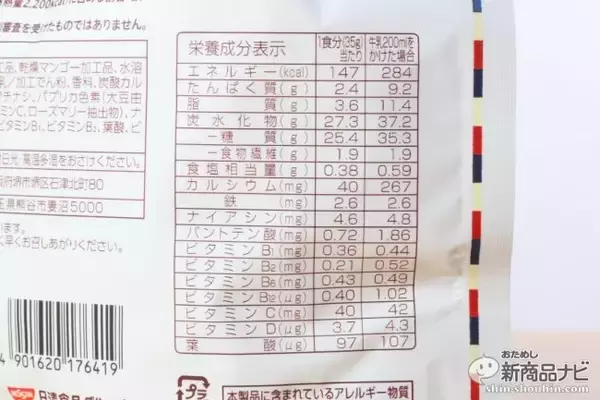 2,200kcal
審査を受けたものではありません。
品、乾燥マンゴー加工品、水溶
/加工でん粉、香料、炭酸カル
チナシ、パプリカ色素(大豆由
ミンC、ローズマリー抽出物)、ナ
ビタミンB₁、ビタミンB₂、葉酸、ビ
日光・高温多湿をおさけください。
阪府堺市堺区石津北町80
玉県熊谷市妻沼5000
ます。
早くお召しあがりください。
栄養成分表示 1食分(35g)当たり 牛乳200mlをかけた場合
エネルギー(kcal) 147 284
たんぱく質(g) 2.4 9.2
脂質(g) 3.6 11.4
炭水化物(g) 27.3 37.2
ー糖質(g) 25.4 35.3
ー食物繊維(g) 1.9 1.9
食塩相当量(g) 0.38 0.59
カルシウム(mg) 40 267
鉄(mg) 2.6 2.6
ナイアシン(mg) 4.6 4.8
パントテン酸(mg) 0.72 1.86
ビタミンB₁(mg) 0.36 0.44
ビタミンB₂(mg) 0.21 0.52
ビタミンB₆(mg) 0.43 0.49
ビタミンB₁₂(μg) 0.40 1.02
ビタミンC(mg) 40 42
ビタミンD(μg) 3.7 4.3
葉酸(μg) 97 107
4 901620 176419
NISSIN
プラ
本製品に含まれているアレルギー物質
おためし
新商品ナビ
shin-shouhin.com